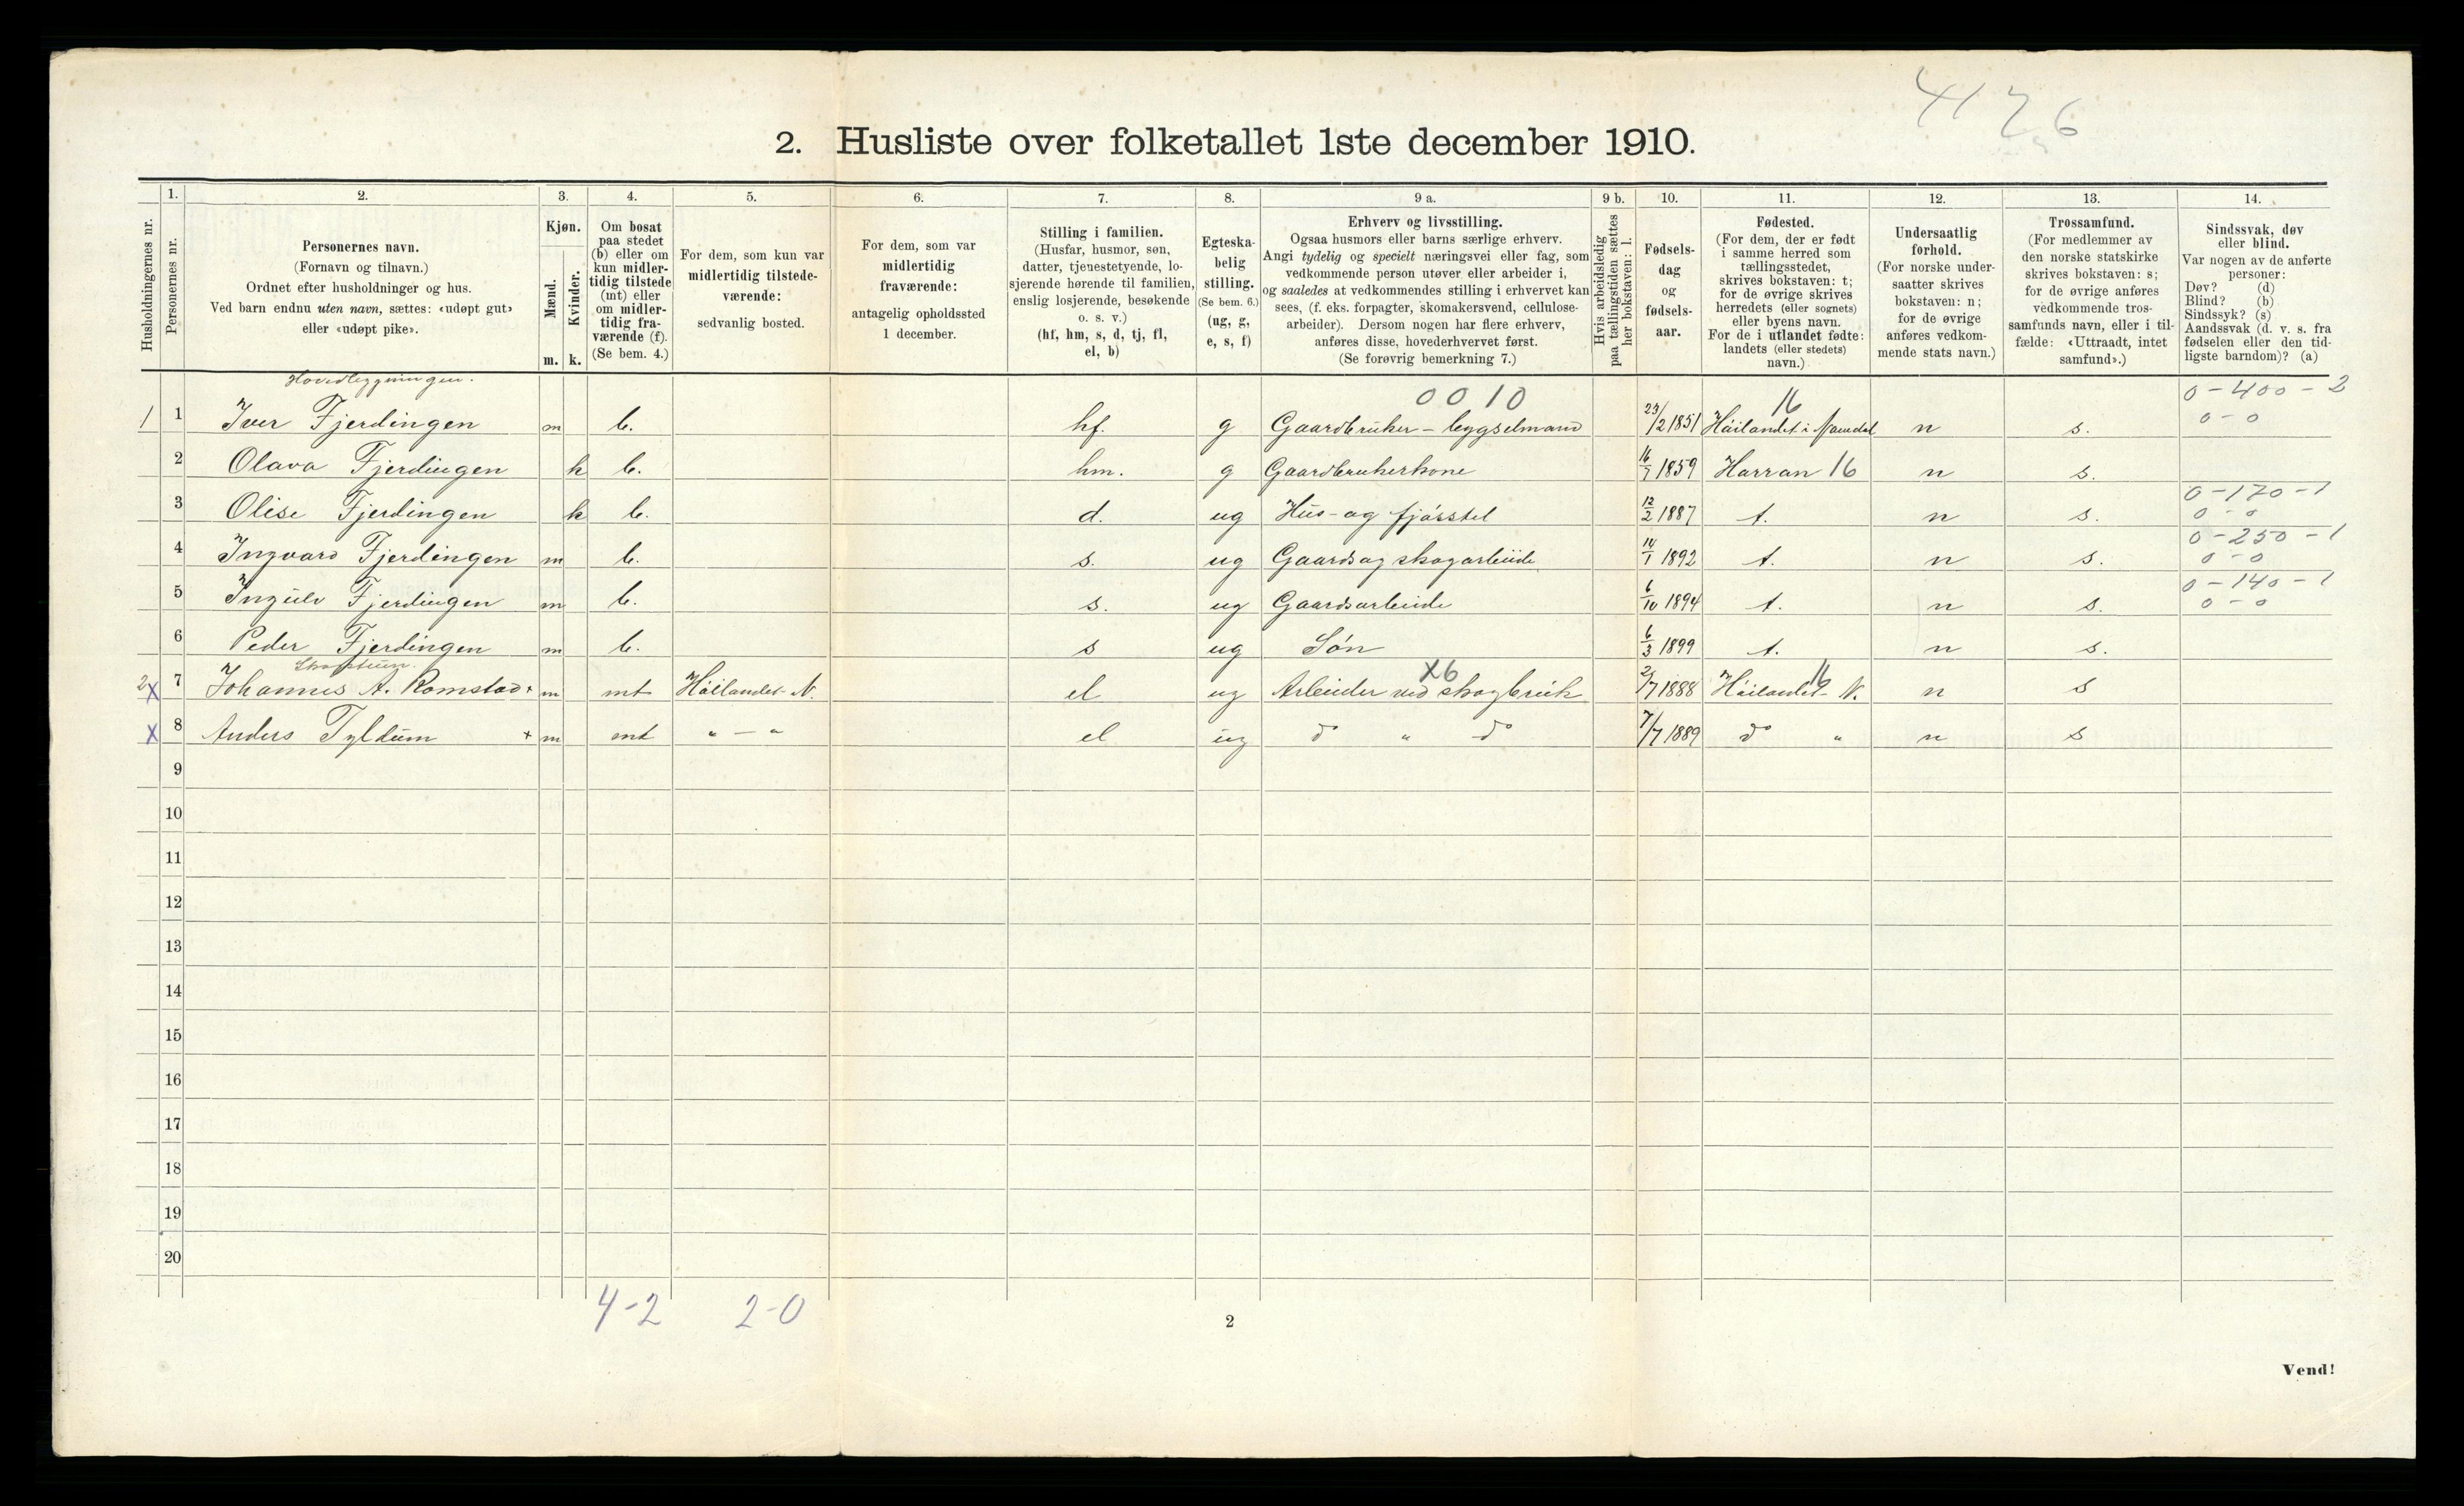 4126
2. Husliste over folketallet 1ste december 1910.
Husholdningernes nr.
1. Personernes nr.
2. Personernes navn.
(Fornavn og tilnavn.)
Ordnet efter husholdninger og hus.
Ved barn endnu uten navn, sættes: «udøpt gut»
eller «udøpt pike».
3. Kjøn.
Mænd. m.
Kvinder. k.
4. Om bosat
paa stedet
(b) eller om
kun midler-
tidig tilstede
(mt) eller
om midler-
tidig fra-
værende (f).
(Se bem. 4.)
5. For dem, som kun var
midlertidig tilstede-
værende:
sedvanlig bosted.
6. For dem, som var
midlertidig
fraværende:
antagelig opholdssted
1 december.
7. Stilling i familien.
(Husfar, husmor, søn,
datter, tjenestetyende, lo-
sjerende hørende til familien,
enslig losjerende, besøkende
o. s. v.)
(hf, hm, s, d, tj, fl,
el, b)
8. Egteska-
belig
stilling.
(Se bem. 6.)
(ug, g,
e, s, f)
9 a. Erhverv og livsstilling.
Ogsaa husmors eller barns særlige erhverv.
Angi tydelig og specielt næringsvei eller fag, som
vedkommende person utøver eller arbeider i,
og saaledes at vedkommendes stilling i erhvervet kan
sees, (f. eks. forpagter, skomakersvend, cellulose-
arbeider). Dersom nogen har flere erhverv,
anføres disse, hovederhvervet først.
(Se forøvrig bemerkning 7.)
9 b. Hvis arbeidsledig
paa tællingstiden sættes
her bokstaven: l.
10. Fødsels-
dag
og
fødsels-
aar.
11. Fødested.
(For dem, der er født
i samme herred som
tællingsstedet,
skrives bokstaven: t;
for de øvrige skrives
herredets (eller sognets)
eller byens navn.
For de i utlandet fødte:
landets (eller stedets)
navn.)
12. Undersaatlig
forhold.
(For norske under-
saatter skrives
bokstaven: n;
for de øvrige
anføres vedkom-
mende stats navn.)
13. Trossamfund.
(For medlemmer av
den norske statskirke
skrives bokstaven: s;
for de øvrige anføres
vedkommende tros-
samfunds navn, eller i til-
fælde: «Uttraadt, intet
samfund».)
14. Sindssvak, døv
eller blind.
Var nogen av de anførte
personer:
Døv? (d)
Blind? (b)
Sindssyk? (s)
Aandssvak (d. v. s. fra
fødselen eller den tid-
ligste barndom)? (a)
Hovedbygningen. 0010 16 0-400-2
1 1 Iver Fjerdingen m b. hf. g Gaardbruker - bygselmand 23/2 1851 Höilandet i Namdal n s. 0-0
2 Olava Fjerdingen k b. hm. g Gaardbrukerkone 16/7 1859 Harran 16 n s.
0-170-1
3 Olise Fjerdingen k b. d. ug Hus- og fjösstel 12/2 1887 t. n s. 0-0
0-250-1
4 Ingvard Fjerdingen m b. s. ug Gaards og skogarbeide 14/1 1892 t. n s. 0-0
0-140-1
5 Ingulv Fjerdingen m b. s. ug Gaardsarbeide 6/10 1894 t. n s. 0-0
6 Peder Fjerdingen m b. s ug Søn 6/3 1899 t. n s.
X6 16
2 X 7 Johannes A. Romstad + m mt Höilandet N. el ug Arbeider ved skogbruk 2/7 1888 Höilandet N. n s
X 8 Anders Tyldum + m mt " — " el ug do " do 7/7 1889 do " n s
9
10
11
12
13
14
15
16
17
18
19
20
4-2 2-0
2
Vend!